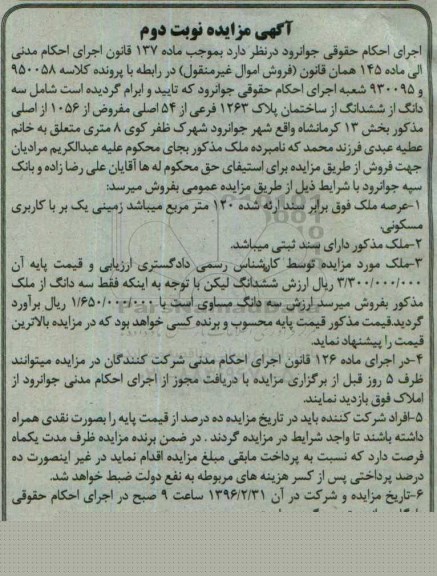 آگهی مزایده نوبت دوم
اجرای احکام حقوقی جوانرود درنظر دارد بموجب ماده ۱۳۷ قانون اجرای احکام مدنی
الی ماده ۱۴۵ همان قانون (فروش اموال غیرمنقول) در رابطه با پرونده کلاسه ۹۵۰۰۵۸
و ۹۳۰۰۹۵ شعبه اجرای احکام حقوقی جوانرود که تایید و ابرام گردیده است شامل سه
دانگ از ششدانگ از ساختمان پلاک ۱۲۶۳ فرعی از ۵۴ اصلی مفروض از ۱۰۵۶ از اصلی
مذکور بخش ۱۳ کرمانشاه واقع شهر جوانرود شهرک ظفر کوی ۸ متری متعلق به خانم
عطیه عبدی فرزند محمد که نامبرده ملک مذکور بجای محکوم علیه عبدالکریم مرادیان
جهت فروش از طریق مزایده برای استیفای حق محکوم له ها آقایان علی رضا زاده و بانک
سپه جوانرود با شرایط ذیل از طریق مزایده عمومی بفروش میرسد:
۱-عرصه ملک فوق برابر سند ارئه شده ۱۲۰ متر مربع میباشد زمینی یک بر با کاربری
مسکونی.
۲-ملک مذکور دارای سند ثبتی میباشد.
۳-ملک مورد مزایده توسط کارشناس رسمی دادگستری ارزیابی و قیمت پایه آن
۳/۳۰۰/۰۰۰/۰۰۰ ریال ارزش ششدانگ لیکن با توجه به اینکه فقط سه دانگ از ملک
مذکور بفروش میرسد ارزش سه دانگ مساوی است با ۱/۶۵۰/۰۰۰/۰۰۰ ریال برآورد
گردید.قیمت مذکور قیمت پایه محسوب و برنده کسی خواهد بود که در مزایده بالاترین
قیمت را پیشنهاد نماید.
۴-در اجرای ماده ۱۲۶ قانون اجرای احکام مدنی شرکت کنندگان در مزایده میتوانند
ظرف ۵ روز قبل از برگزاری مزایده با دریافت مجوز از اجرای احکام مدنی جوانرود از
املاک فوق بازدید نمایند.
۵-افراد شرکت کننده باید در تاریخ مزایده ده درصد از قیمت پایه را بصورت نقدی همراه
داشته باشند تا واجد شرایط در مزایده گردند . در ضمن برنده مزایده ظرف مدت یکماه
فرصت دارد که نسبت به پرداخت مابقی مبلغ مزایده اقدام نماید در غیر اینصورت ده
درصد پرداختی پس از کسر هزینه های مربوطه به نفع دولت ضبط خواهد شد.
۶-تاریخ مزایده و شرکت در آن ۱۳۹۶/۲/۳۱ ساعت ۹ صبح در اجرای احکام حقوقی